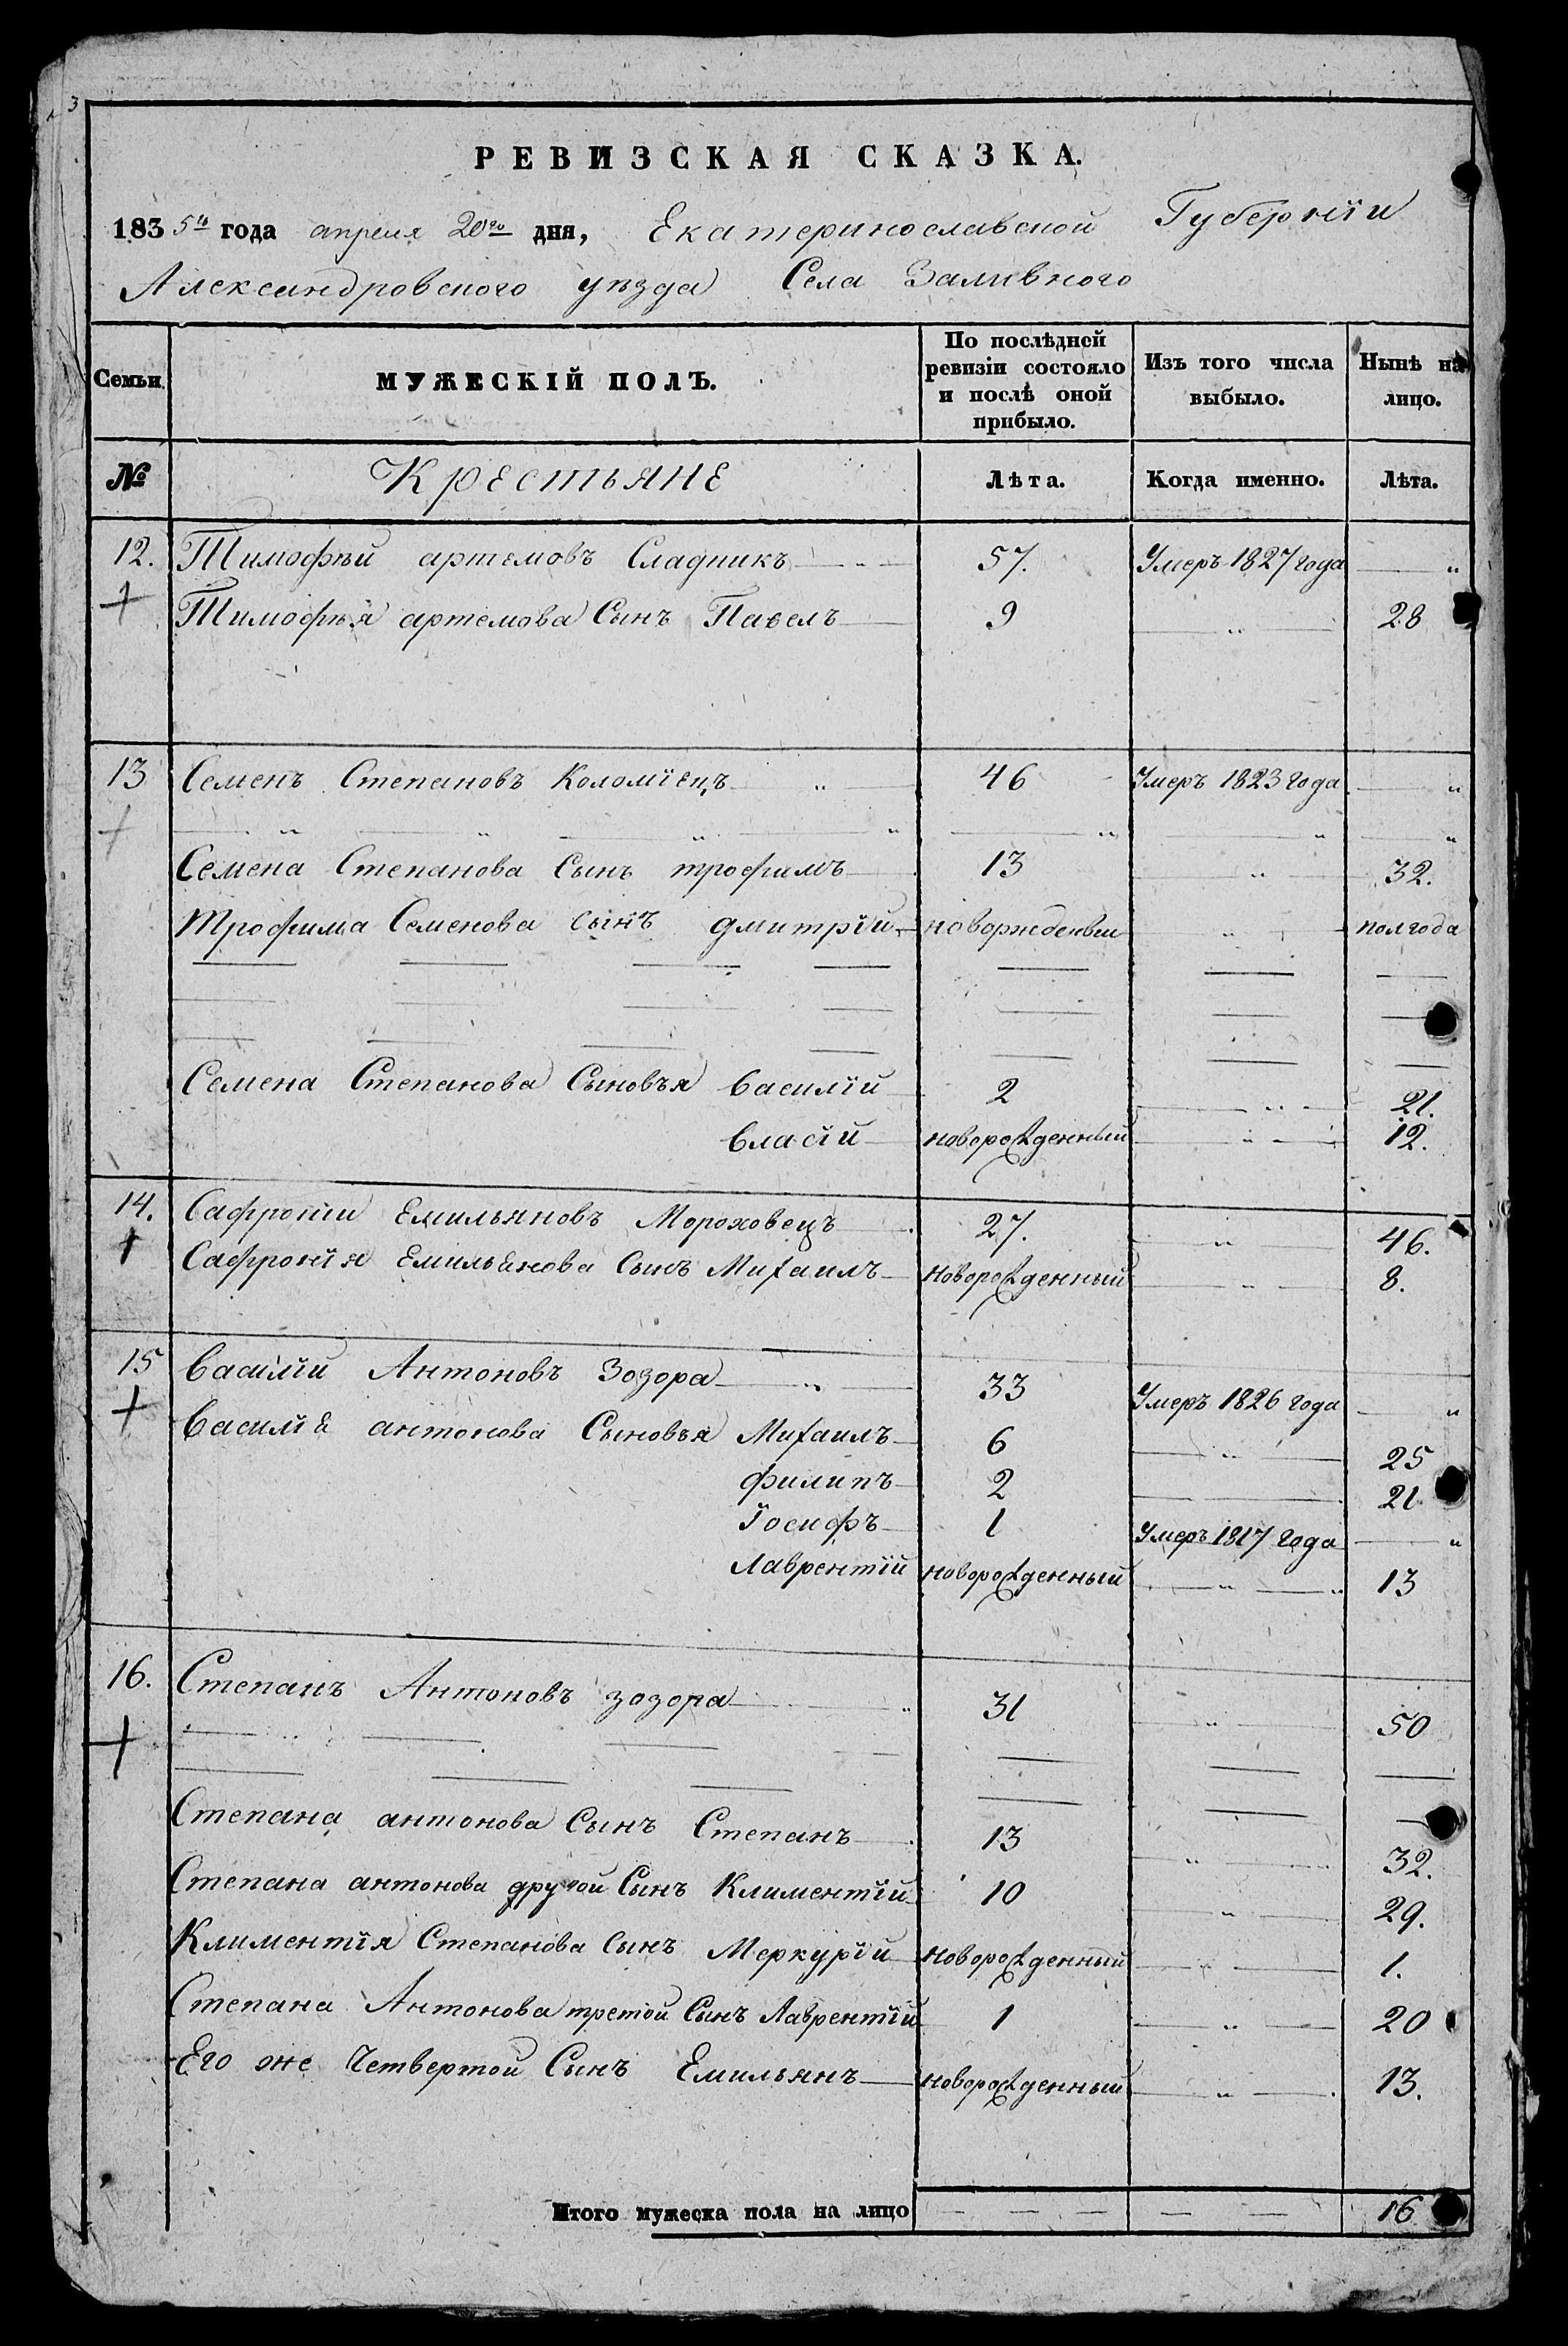 3
РЕВИЗСКАЯ СКАЗКА.
1835го года апреля 20го дня, Екатеринославской Губернїи
Александровского уѣзда Села Заливного
Семьи.
МУЖЕСКІЙ ПОЛЪ.
По послѣдней ревизіи состояло и послѣ оной прибыло.
Изъ того числа выбыло.
Нынѣ на лицо.
№ Крестьяне Лѣта. Когда именно. Лѣта.
12. Тимофѣй артемовъ Сладникъ 57. Умеръ 1827 года "
Тимофѣя артемова Сынъ Павелъ 9 " 28
13 Семенъ Степановъ Коломїецъ " 46 Умеръ 1823 года "
Семена Степанова Сынъ трофимъ 13 " 32.
трофима Семенова сынъ дмитрїй новорожденый " пол года
Семена Степанова Сыновья василїй 2 " 21.
власїй новорожденный " 12.
14. Сафронїи Емильяновъ Мороховецъ 27. " 46.
Сафронїя Емильянова Сынъ Михаилъ новорожденный " 8.
15 василїй Антоновъ Зозора " 33 Умеръ 1826 года "
василїя антонова Сыновья Михаилъ 6 " 25
филипъ 2 21
їосифъ 1 Умеръ 1817 года "
Лаврентїй новорожденный " 13
16. Степанъ Антоновъ зозора " 31 " 50
Степана антонова Сынъ Степанъ 13 " 32.
Степана антонова другой Сынъ Климентїй 10 " 29.
Климентїя Степанова сынъ Меркурїй новорожденный " 1.
Степана Антонова третой Сынъ Лаврентїй 1 " 20
Его же Четвертой Сынъ Емильянъ новорожденный " 13.
Итого мужеска пола на лицо 16